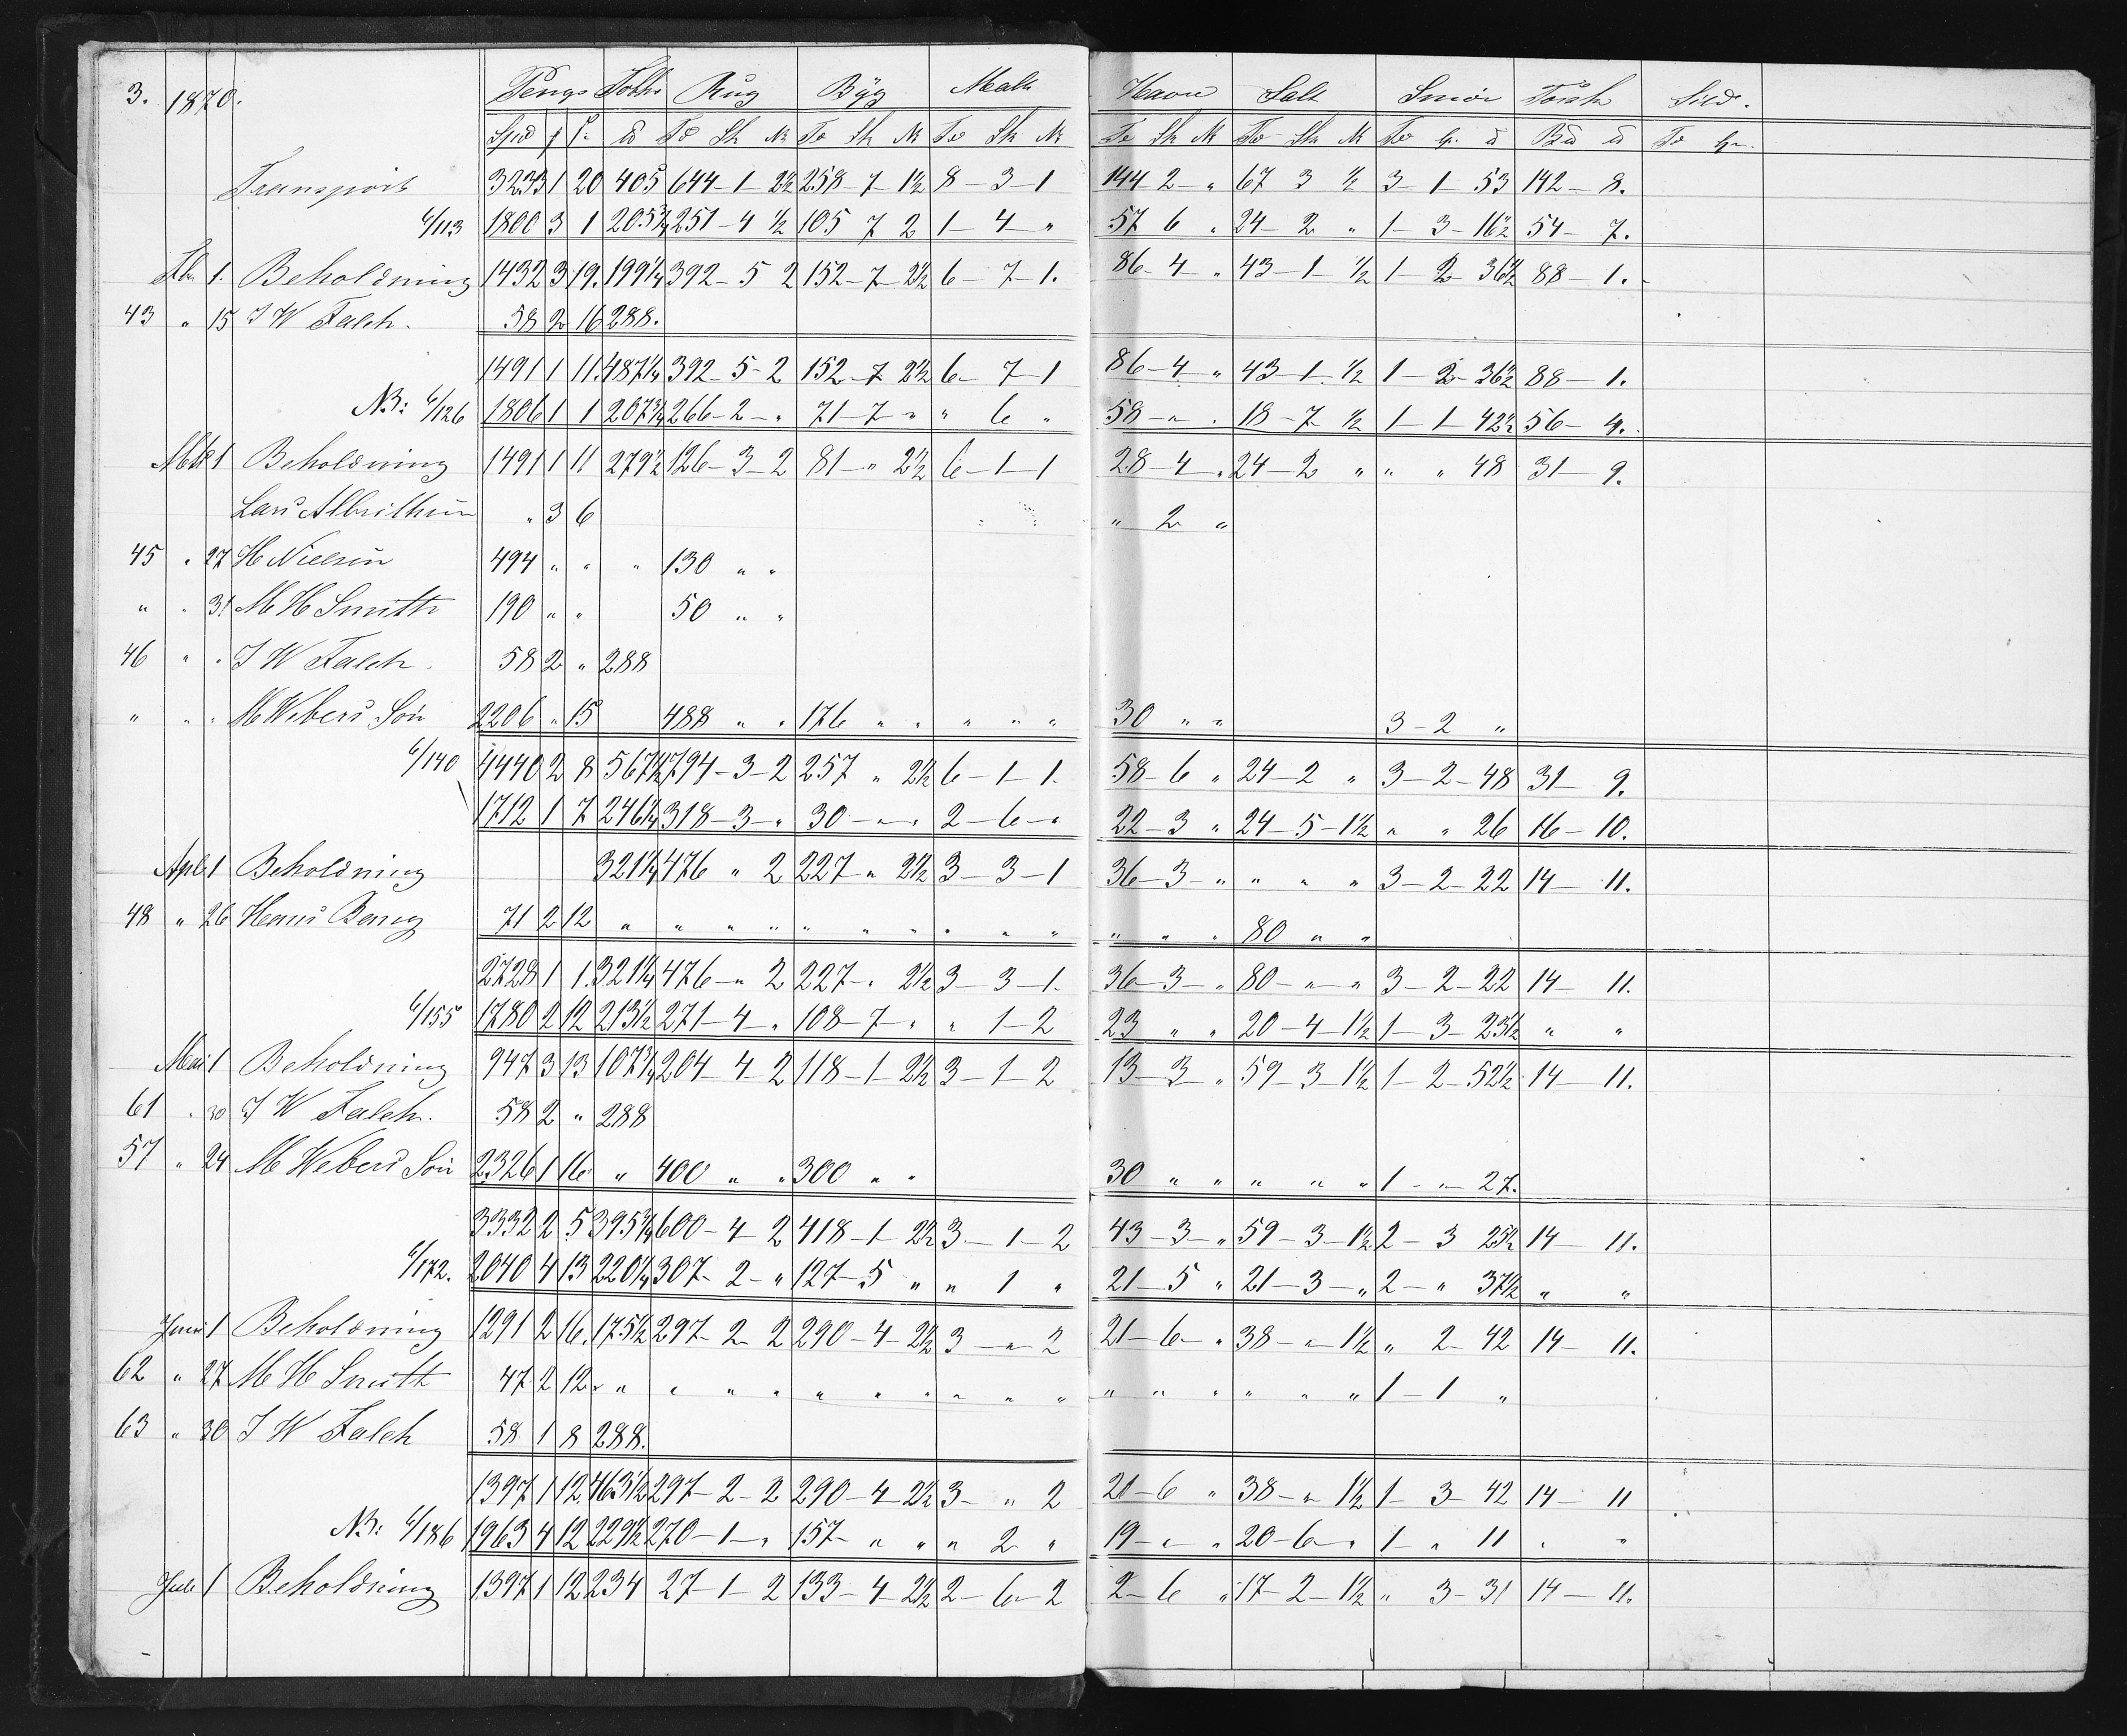 3. 1870. Penge Tobk Rug Byg Malt Havre Salt Smör Torsk Sild.
Spd To Sk To Sk To Sk To Sk To Sk To To
Transport 3233 1 20 405 644-1-2½ 258-7-1½ 8-3-1 144 2-" 67 3 ½ 3-1 53 142-8.
6/113 1800 3 1 205¾ 251-4 ½ 105 7 2 1-4-" 57 6 " 24-2 " 1-3-16½ 54-7.
Fbr 1. Beholdning 1432 3 19. 199¼ 392-5 2 152-7-2½ 6-7-1. 86-4 " 43-1-½ 1-2-36½ 88-1.
43 " 15 J W Falch. 58 2 16 288.
1491 1 11. 487¼ 392-5-2 152-7 2½ 6-7-1 86-4 " 43-1-½ 1-2-36½ 88-1.
NB: 6/126 1806 1 1 207¾ 266-2-" 71-7-" " 6 " 58-" " 18-7 ½ 1-1 42½ 56-4.
1 Beholdning 1491 1 11 279½ 126-3-2 81-" 2½ 6-1-1 28-4 " 24-2 " " " 48 31-9.
Lars " 3 6 " 2 "
45 " 27 H Nielsen 494 " " " 130 " "
" " 31 M H Smith 190 " " 50 " "
46 " " J W Falch. 58 2 " 288
" " " M Webers Sön 2206 " 15 488 " " 176 " " " " " 30 " " 3-2 "
6/140 4440 2 8 567½ 794-3-2 257 " 2½ 6-1-1. 58-6 " 24-2 " 3-2-48 31-9.
1712 1 7 246¼ 318-3-" 30-"-" 2-6-" 22-3 " 24-5-1½ " " 26 16-10.
Apl 1 Beholdning 321¼ 476 " 2 227 " 2½ 3-3-1 36-3-" " " " 3-2-22 14-11.
48 " 26 Hans 71 2 12 " " " " " " " " " " " " " 80 " "
2728 1 1. 321¼ 476-" 2 227-" 2½ 3-3-1. 36-3-" 80-"-" 3-2-22 14-11.
6/155 1780 2 12 213½ 271-4 " 108-7-" " 1-2 23 " " 20-4-1½ 1-3-23½ " "
Mai 1 Beholdning 947 3 13 107¾ 204-4-2 118-1-2½ 3-1-2 13-3 " 59-3-1½ 1-2-52½ 14-11.
61 " 30 J W Falch. 58 2 " 288
57 " 24 M Webers Sön 2326 1 16 " 400 " " 300 " " 30 " " " " " 1-"-27.
3332 2 5 395¾ 600-4-2 418-1-2½ 3-1-2 43-3-" 59-3-1½ 2-3 25½ 14-11.
6/172. 2040 4 13 220¼ 307-2-" 127-5 " " 1 " 21-5 " 21-3-" 2-" 37½ " "
Juni 1 Beholdning 1291 2 16. 175½ 297-2-2 290-4-2½ 3-"-2 21-6-" 38-"-1½ " 2-42 14-11.
62 " 27 M H Smith 47 2 12 " " " " " " " " " " " " " " " " 1-1 "
63 " 30 J W Falch 58 1 8 288.
1397 1 12. 463½ 297-2-2 290-4-2½ 3-" 2 21-6 " 38-"-1½ 1-3-42 14-11
NB: 6/186 1963 4 12 229½ 270-1-" 157-" " " 2 " 19-"-" 20-6-" 1-" 11 " "
Juli 1 Beholdning 1397 1 12 234 27-1-2 133-4-2½ 2-6-2 2-6 " 17-2-1½ " 3-31 14-11.